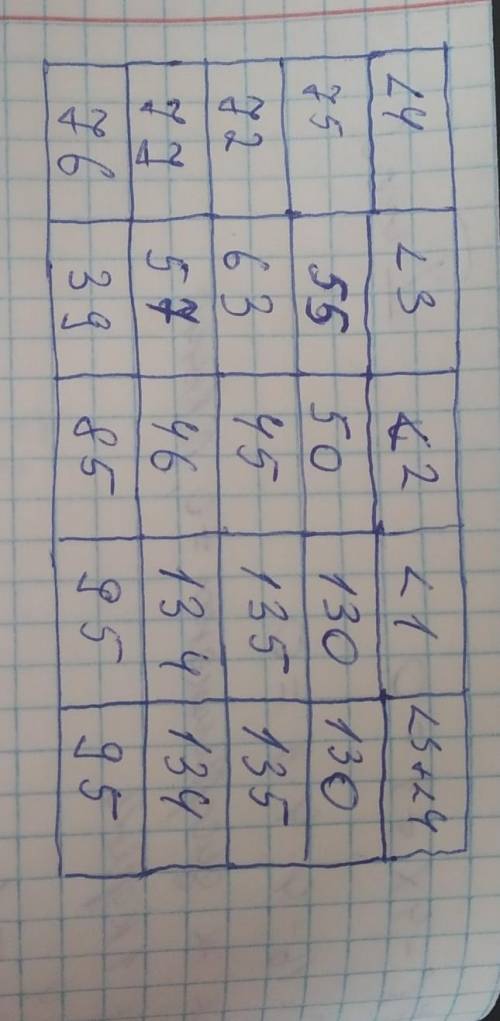 ∠4 ∠3 ∠2 ∠1 ∠3+∠4
75 55 50 130 130
72 63 45 135 135
77 57 46 134 134
76 39 85 95 95